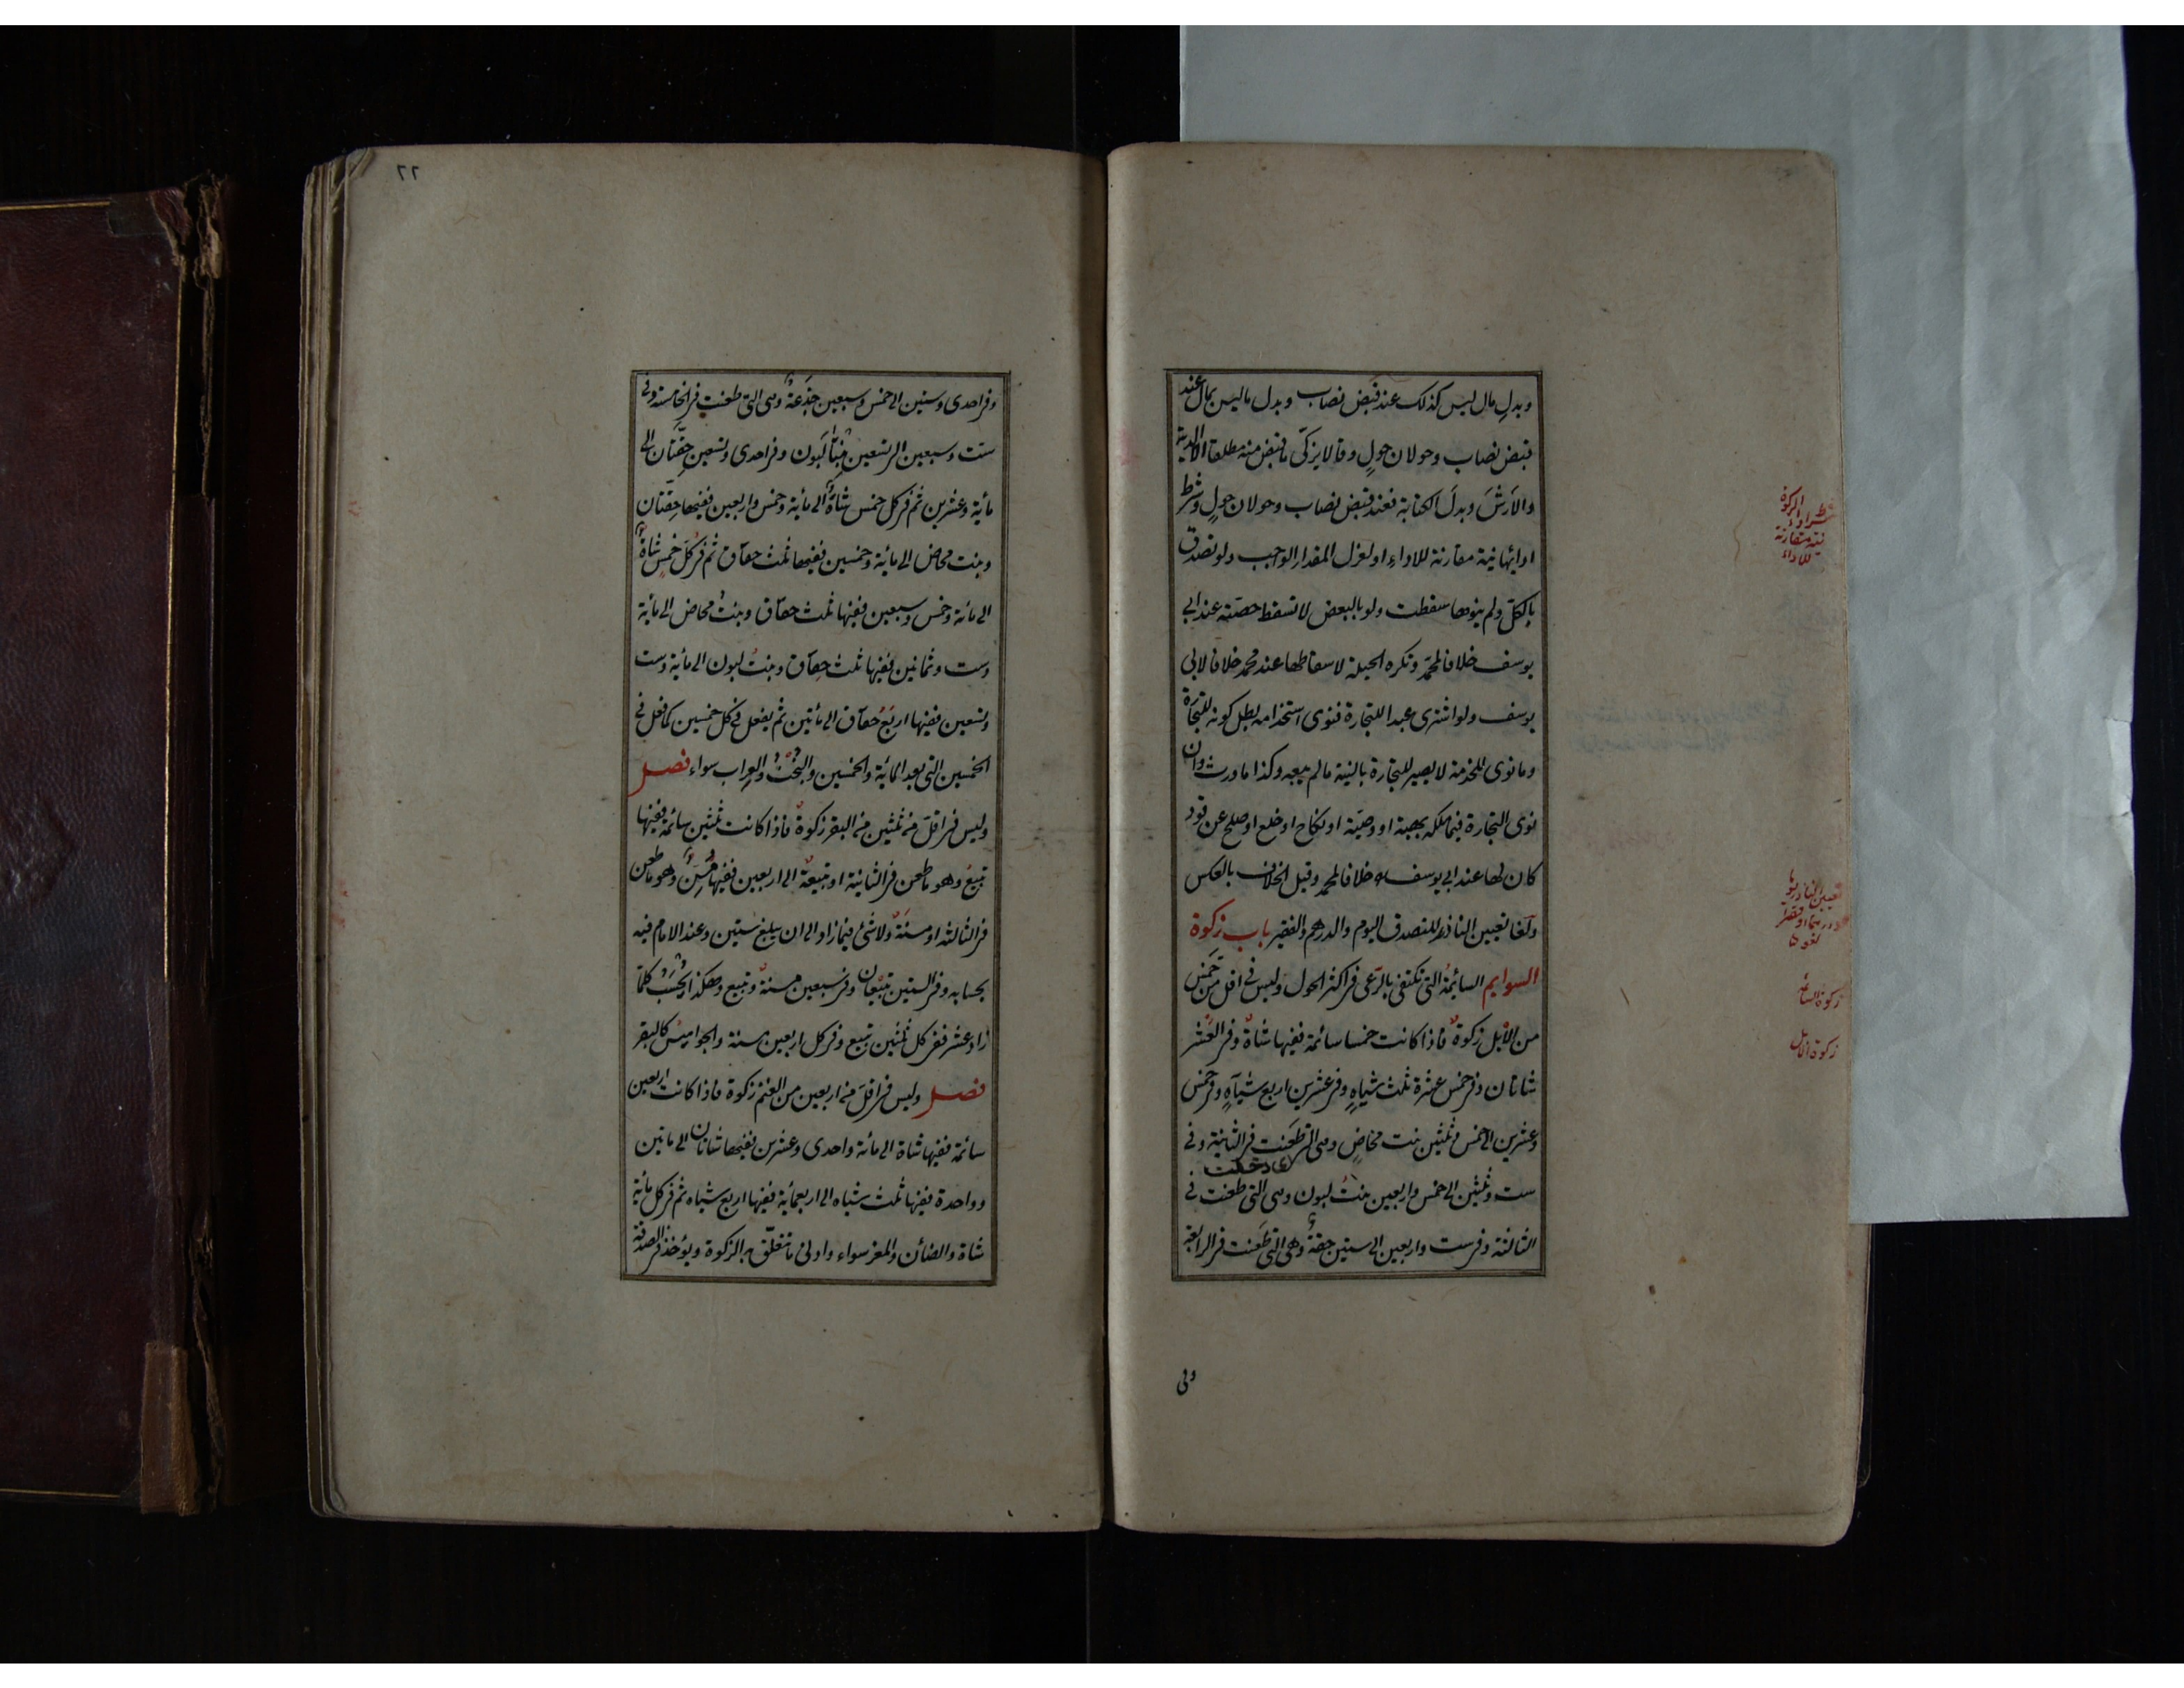 وبدل مال ليس كذلك عند قبض نصاب وبدل ما ليس بمال عند
قبض نصاب وحولان حول وقالا يزكى ما قبض منه مطلقا الا الدية
والارش وبدل الكتابة فعند قبض نصاب وحولان حول وشرط
ادائها نية مقارنة للاداء او لعزل المقدار الواجب ولو تصدق
بالكل ولم ينوها سقطت ولو بالبعض لا تسقط حصته عند ابي
يوسف خلافا لمحمد وتكره الحيلة لاسقاطها عند محمد خلافا لابي
يوسف ولو اشترى عبدا للتجارة فنوى استخدامه بطل كونه للتجارة
وما نوى للخدمة لا يصير للتجارة بالنية ما لم يبعه وكذا ما ورث وان
نوى التجارة فيما ملكه بهبة او وصية او نكاح او خلع او صلح عن قود
كان لها عند ابي يوسف خلافا لمحمد وقيل الخلاف بالعكس
ولغا تعيين الناذر للتصدق اليوم والدرهم والفقير باب زكوة
السوايم السايمة التي تكتفى بالرعى فى اكثر الحول وليس في اقل من خمس
من الابل زكوة فاذا كانت خمسا سائمة ففيها شاة وفى العشر
شاتان وفى خمس عشرة ثلث شياه وفى عشرين اربع شياه وفى خمس
وعشرين الى خمس وثلثين بنت مخاض وهى التى طعنت فى الثانية وفي
اى دخلت
ست وثلثين الى خمس واربعين بنت لبون وهى التى طعنت في
الثالثة وفى ست واربعين الى ستين حقة وهى التى طعنت فى الرابعة
وفى
شرط اداء الزكوة
نية مقارنة
للاداء
زكوة السائمة
زكوة الابل
٦٦
وفى احدى وستين الى خمس وسبعين جذعة وهى التى طعنت فى الخامسة وفى
ست وسبعين الى تسعين بنتا لبون وفى احدى وتسعين حقتان الى
مائة وعشرين ثم فى كل خمس شاة الى مائة وخمس واربعين ففيها حقتان
وبنت مخاض الى مائة وخمسين ففيها ثلث حقاق ثم فى كل خمس شاة
الى مائة وخمس وسبعين ففيها ثلث حقاق وبنت مخاض الى مائة
وست وثمانين ففيها ثلث حقاق وبنت لبون الى مائة وست
وتسعين ففيها اربع حقاق الى مأتين ثم يفعل فى كل خمسين كما فعل فى
الخمسين التى بعد المائة والخمسين والبخت والعراب سواء فصل
وليس فى اقل من ثلثين من البقر زكوة فاذا كانت ثلثين سائمة ففيها
تبيع وهو ما طعن فى الثانية او تبيعة الى اربعين ففيها مسن وهو ما طعن
فى الثالثة او مسنة ولا شئ فيما زاد الى ان يبلغ ستين وعند الامام فيه
بحسابه وفى الستين تبيعان وفى سبعين مسنة وتبيع وهكذا يحسب كلما
زاد عشر ففى كل ثلثين تبيع وفى كل اربعين مسنة والجواميس كالبقر
فصل وليس فى اقل من اربعين من الغنم زكوة فاذا كانت اربعين
سائمة ففيها شاة الى مائة واحدى وعشرين ففيها شاتان الى مأتين
وواحدة ففيها ثلث شياه الى اربعمائة ففيها اربع شياه ثم فى كل مائة
شاة والضائن والمعز سواء وادنى ما تتعلق به الزكوة ويؤخذ فى الصدقة